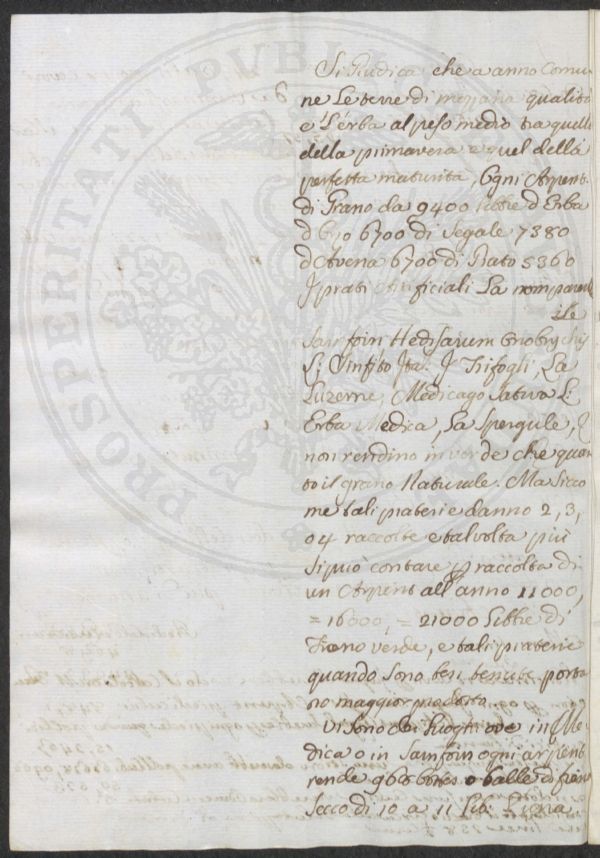 PROSPERITATI PUBLICAE
Si Giudica che a anno Comu
ne Le terre di mezana qualità
e L'erba al peso medio tra quello
della primavera e quel della
perfetta maturità, Ogni Arpent
di Grano da 9400 Libre d'Erba
d'Orzo 6700 di Segale 7380
d'Avena 6700 di Prato 5360
I prati Artificiali La
Sainfoin Hedisarum Onobrychis
L: I Trifogli, La
Luzerne, Medicago Sativa L:
Erba Medica, La Spergule,
non rendino in verde che quan
to il grano Naturale. Ma Sicco
me tali praterie danno 2, 3,
o 4 raccolte e talvolta più
si può contare raccolta di
un Arpent all'anno 11000,
= 16000, = 21000 Libre di
Fieno verde, e tali praterie
quando sono ben tenute porta
no maggior prodotto.
Vi sono dei Luoghi ove in Me
dica o in Sainfoin ogni arpent
rende o balle di fieno
Secco di 10 a 11 Lib: